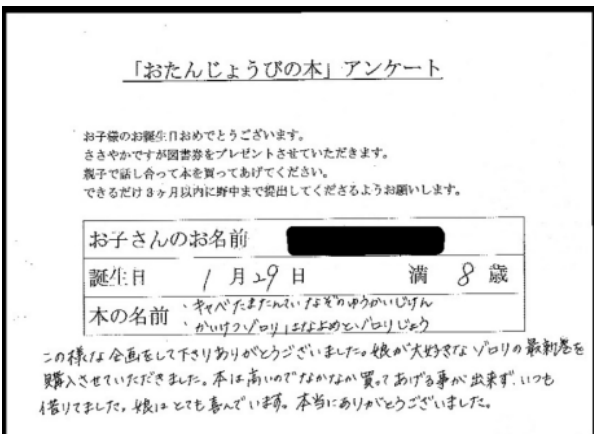 「おたんじょうびの本」アンケート
お子様のお誕生日おめでとうございます。
ささやかですが図書券をプレゼントさせていただきます。
親子で話し合って本を買ってあげてください。
できるだけ3ヶ月以内に野中まで提出してくださるようお願いします。
お子さんのお名前
誕生日 1月29日 満 8 歳
本の名前 ・キャベたまたんてい なぞのゆうかいじけん
・かいけつゾロリ はなよめとゾロリじょう
この様な企画をして下さりありがとうございました。娘が大好きなゾロリの最新巻を
購入させていただきました。本は高いのでなかなか買ってあげる事が出来ず、いつも
借りてました。娘はとても喜んでいます。本当にありがとうございました。